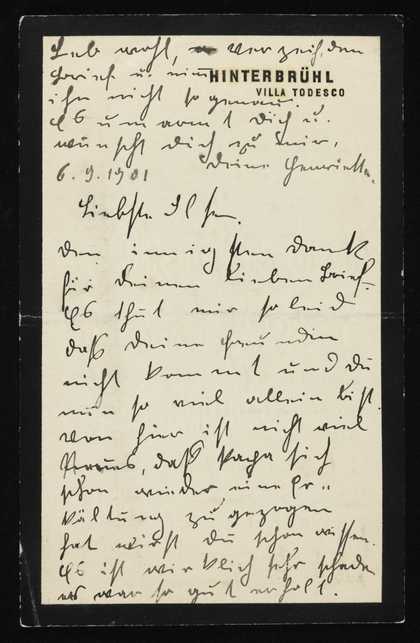 Leb wohl, verzeih den
Brief u. nimm
ihn nicht so genau.
Es umarmt Dich u.
wünscht Dich zu mir,
Deine Henriette.
HINTERBRÜHL
VILLA TODESCO
6.9.1901
Liebste Ilsen.
den innigsten Dank
für Deinen lieben Brief.
Es thut mir so leid
daß Deine Freundin
nicht kommt und Du
nun so viel allein bist.
Von hier ist nicht viel
Neues, daß Papa sich
schon wieder eine Er-
kältung zugezogen
hat wirst Du schon wissen.
Es ist wirklich sehr schade
er war so gut erholt.